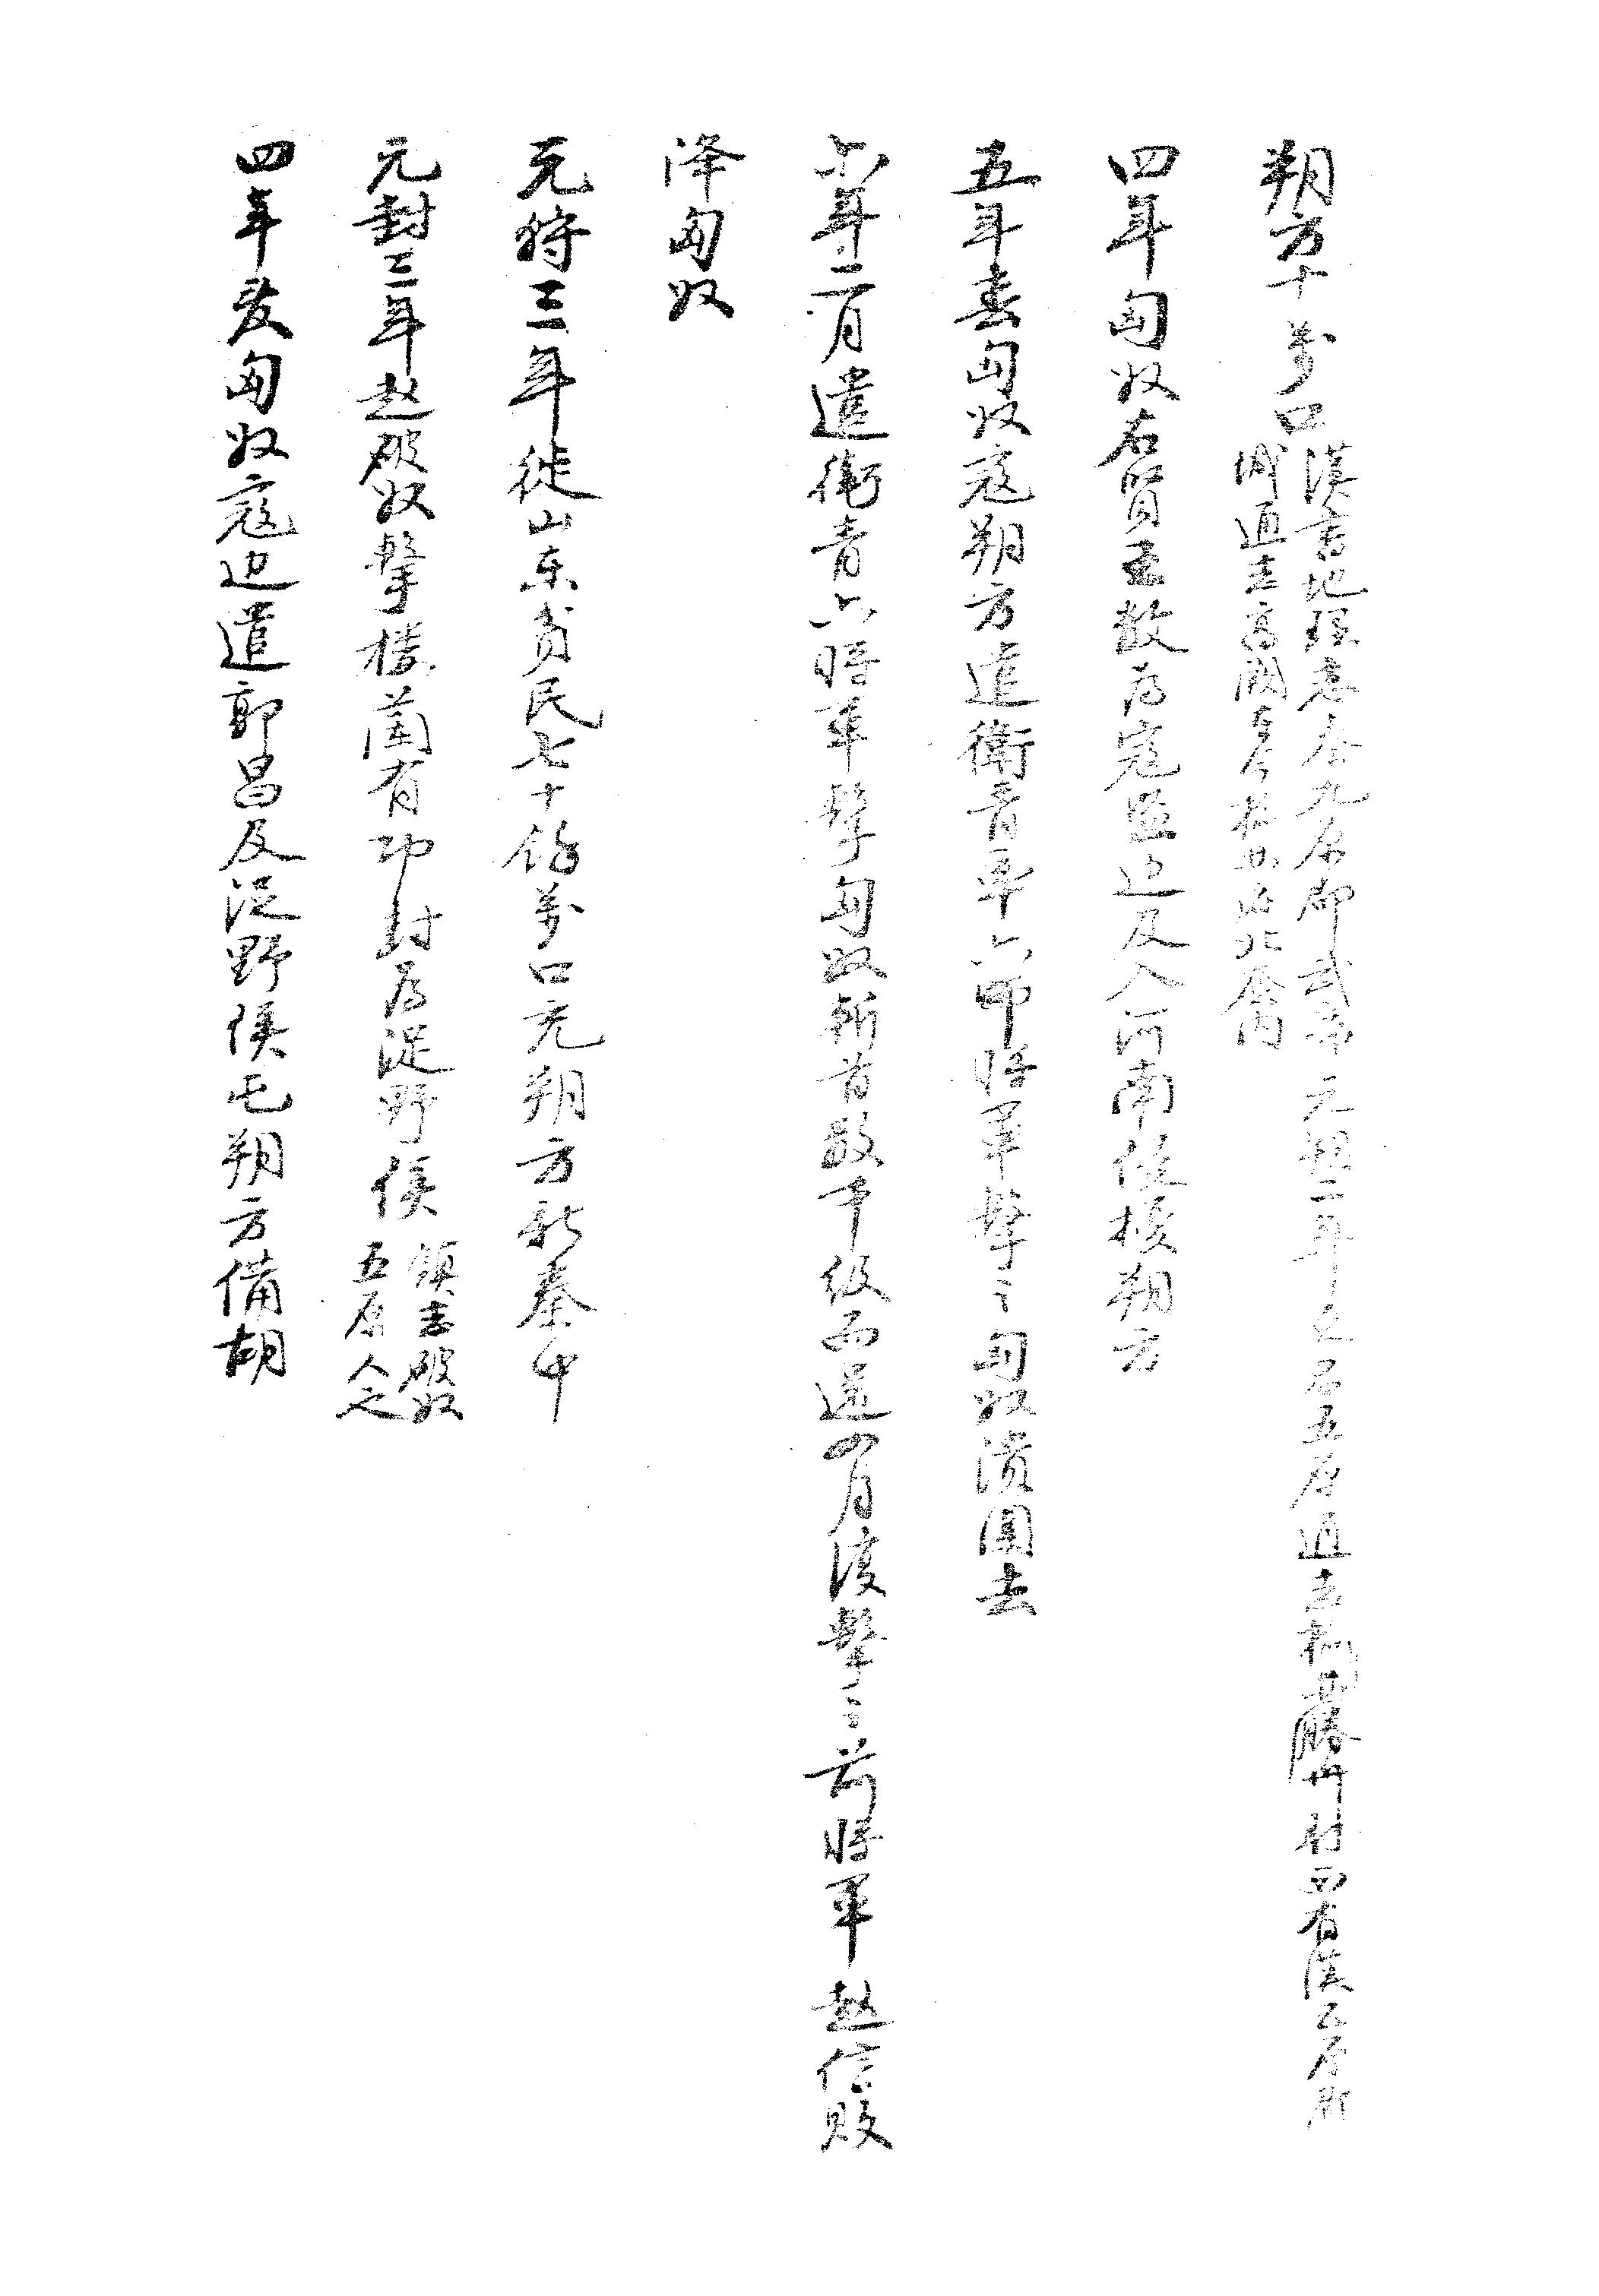 朔方十萬口漢書地理志秦九原郡武帝元朔二年更名五原通志楡林勝州材西有漢五原郡
城通志高闕在今榆林府北塞內
四年匈奴右賢王数为寇盗边及入河南侵擾朔方
五年春匈奴寇朔方遣衛青率六師將軍擊之匈奴潰圍去
六年二月遣衛青六將軍擊匈奴斬首数千級而還四月復擊之前將軍赵信敗
降匈奴
元狩三年徙山东貧民七十餘萬口充朔方新秦中
元封三年赵破奴擊樓蘭有功封为浞野侯鎮志破奴
五原人也
四年发匈奴寇边遣郭昌及浞野侯屯朔方備胡